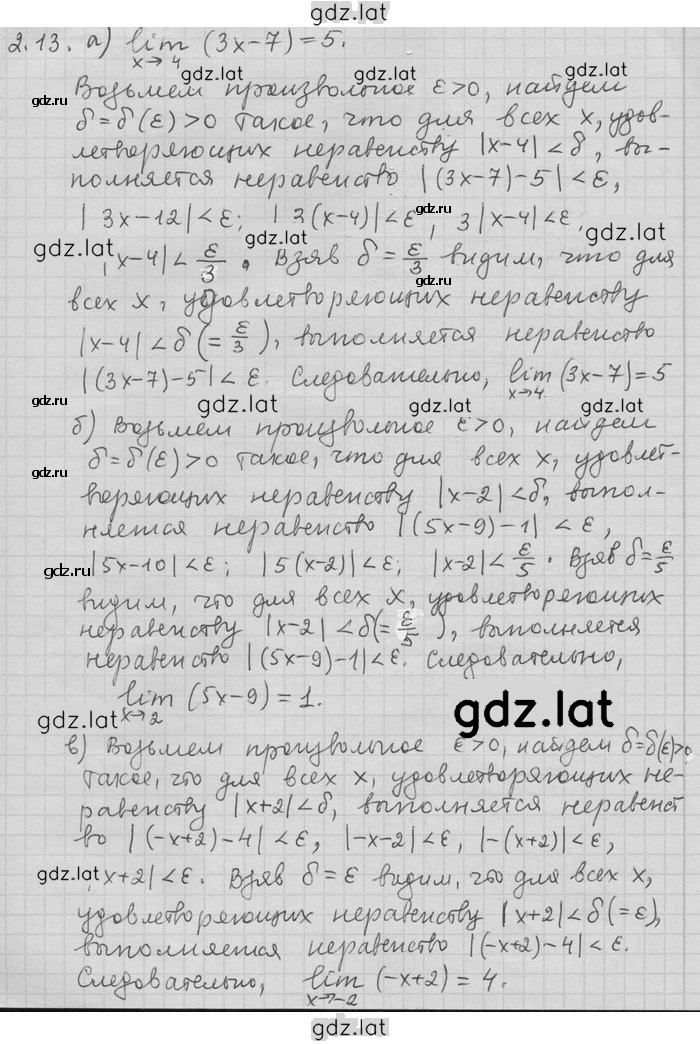 gdz.lat
2.13. а) lim (3x-7)=5.
x→4
gdz.lat
gdz.lat
Возьмем произвольное ε>0, найдем
gdz.ru
δ=δ(ε)>0 такое, что для всех x, удов-
летворяющих неравенству |x-4|<δ, вы-
полняется неравенство |(3x-7)-5|<ε,
|3x-12|<ε; |3(x-4)|<ε, 3|x-4|<ε,
gdz.lat gdz.lat gdz.ru
|x-4|<ε/3. Взяв δ=ε/3 видим, что для
всех x, удовлетворяющих неравенству
|x-4|<δ(=ε/3), выполняется неравенство
|(3x-7)-5|<ε. Следовательно, lim (3x-7)=5
x→4
gdz.ru gdz.lat gdz.lat
б) Возьмем произвольное ε>0, найдем
gdz.ru
δ=δ(ε)>0 такое, что для всех x, удовлет-
воряющих неравенству |x-2|<δ, выпол-
няется неравенство |(5x-9)-1|<ε,
gdz.lat gdz.lat
|5x-10|<ε; |5(x-2)|<ε; |x-2|<ε/5. Взяв δ=ε/5
gdz.ru
видим, что для всех x, удовлетворяющих
неравенству |x-2|<δ(=ε/5), выполняется
неравенство |(5x-9)-1|<ε. Следовательно,
lim (5x-9)=1.
x→2
gdz.lat gdz.lat
в) Возьмем произвольное ε>0, найдем δ=δ(ε)>0
такое, что для всех x, удовлетворяющих не-
равенству |x+2|<δ, выполняется неравенст
во |(-x+2)-4|<ε, |-x-2|<ε, |-(x+2)|<ε,
gdz.lat gdz.lat gdz.lat
|x+2|<ε. Взяв δ=ε видим, что для всех x,
удовлетворяющих неравенству |x+2|<δ(=ε),
выполняется неравенство |(-x+2)-4|<ε.
Следовательно, lim (-x+2)=4.
x→-2
gdz.lat